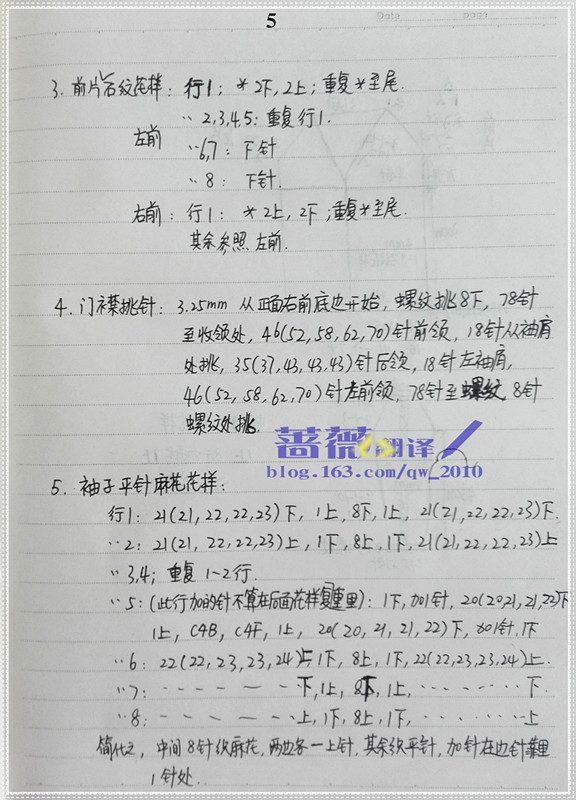 5
Date
page
3. 前片后纹花样: 行1; *2下, 2上; 重复*至尾.
〃2,3,4,5: 重复行1.
左前
〃6,7: 下针
〃8: 下针.
右前: 行1: *2上, 2下; 重复*至尾.
其余参照左前.
4. 门襟挑针: 3.25mm 从正面右前底边开始, 螺纹挑8下, 78针
至收领处, 46(52,58,62,70)针前领, 18针从袖肩
处挑, 35(37,43,43,43)针后领, 18针左袖肩,
46(52,58,62,70)针左前领, 78针至螺纹, 8针
螺纹处挑.
蔷薇翻译
blog.163.com/qw_2010
5. 袖子平针麻花花样:
行1: 21(21,22,22,23)下, 1上, 8下, 1上, 21(21,22,22,23)下.
〃2: 21(21,22,22,23)上, 1下, 8上, 1下, 21(21,22,22,23)上
〃3,4; 重复1-2行.
〃5: (此行加的针不算在后面花样重复里): 1下, 加1针, 20(20,21,21,22)下
1上, C4B, C4F, 1上, 20(20,21,21,22)下, 加1针, 1下
〃6: 22(22,23,23,24)上, 1下, 8上, 1下, 22(22,23,23,24)上.
〃7: - - - - - 下, 1上, 8下, 1上, - - - - - 下
〃8: - - - - - 上, 1下, 8上, 1下, - - - - - 上
简代之, 中间8针织麻花, 两边各一上针, 其余织平针, 加针在边针靠里
1针处.